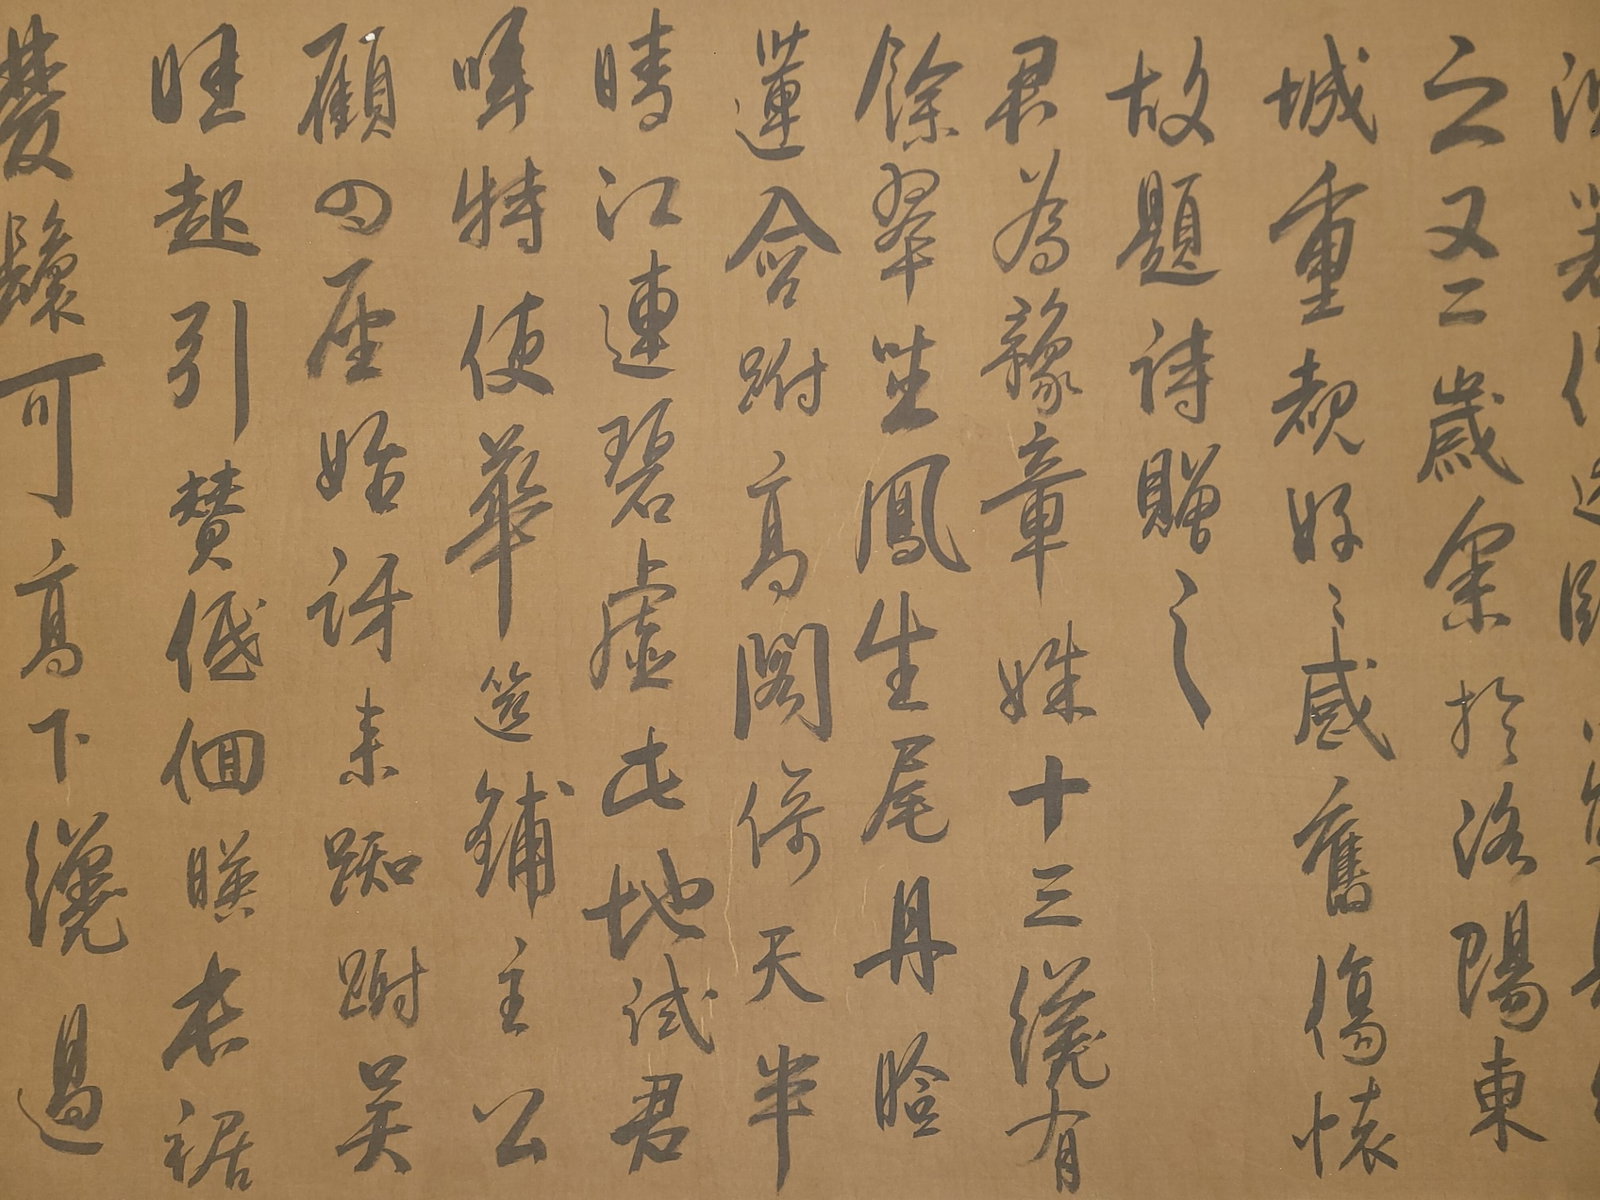 之又二歲余於洛陽東
城重覩好〻感舊傷懷
故題詩贈之
君為豫章姝十三纔有
餘翠鳳生尾丹臉
蓮含跗高閣倚天半
晴江連碧虛此地試君
唱特使華筵鋪主公
顧四座始訝來踟躕吳
娃起引贊低佪暎長裾
雙鬟可高下纔過